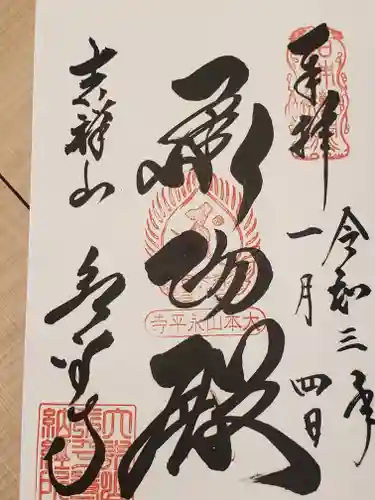 奉拝
令和三年
一月四日
承陽殿
大本山永平寺
吉祥山
永平寺